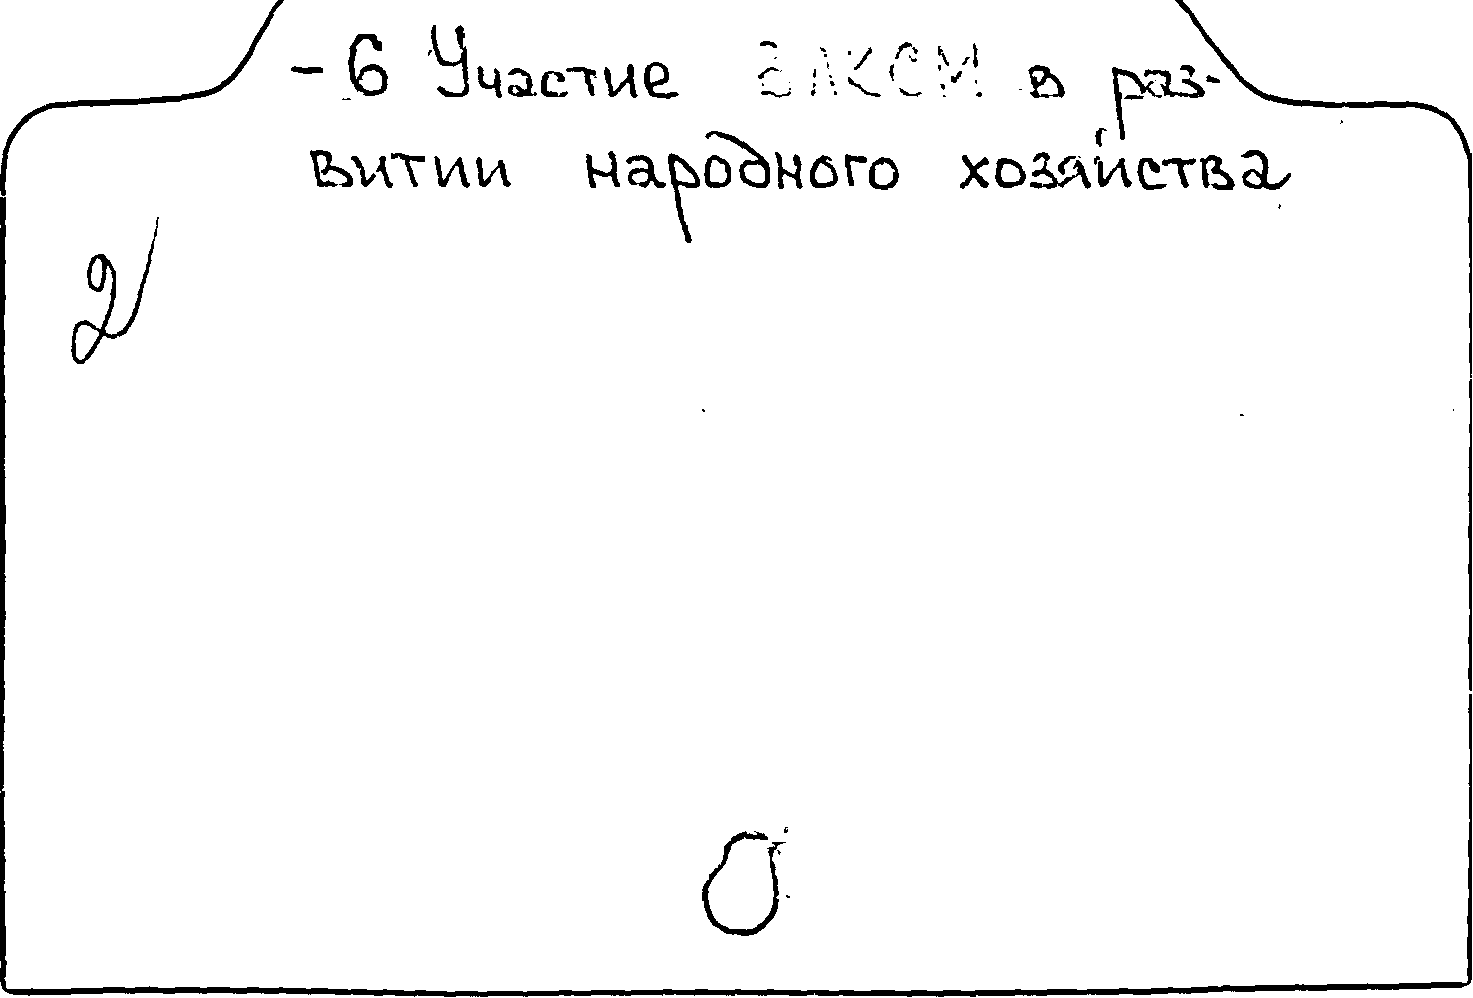 -6 Участие ВЛКСМ в раз-
витии народного хозяйства
2